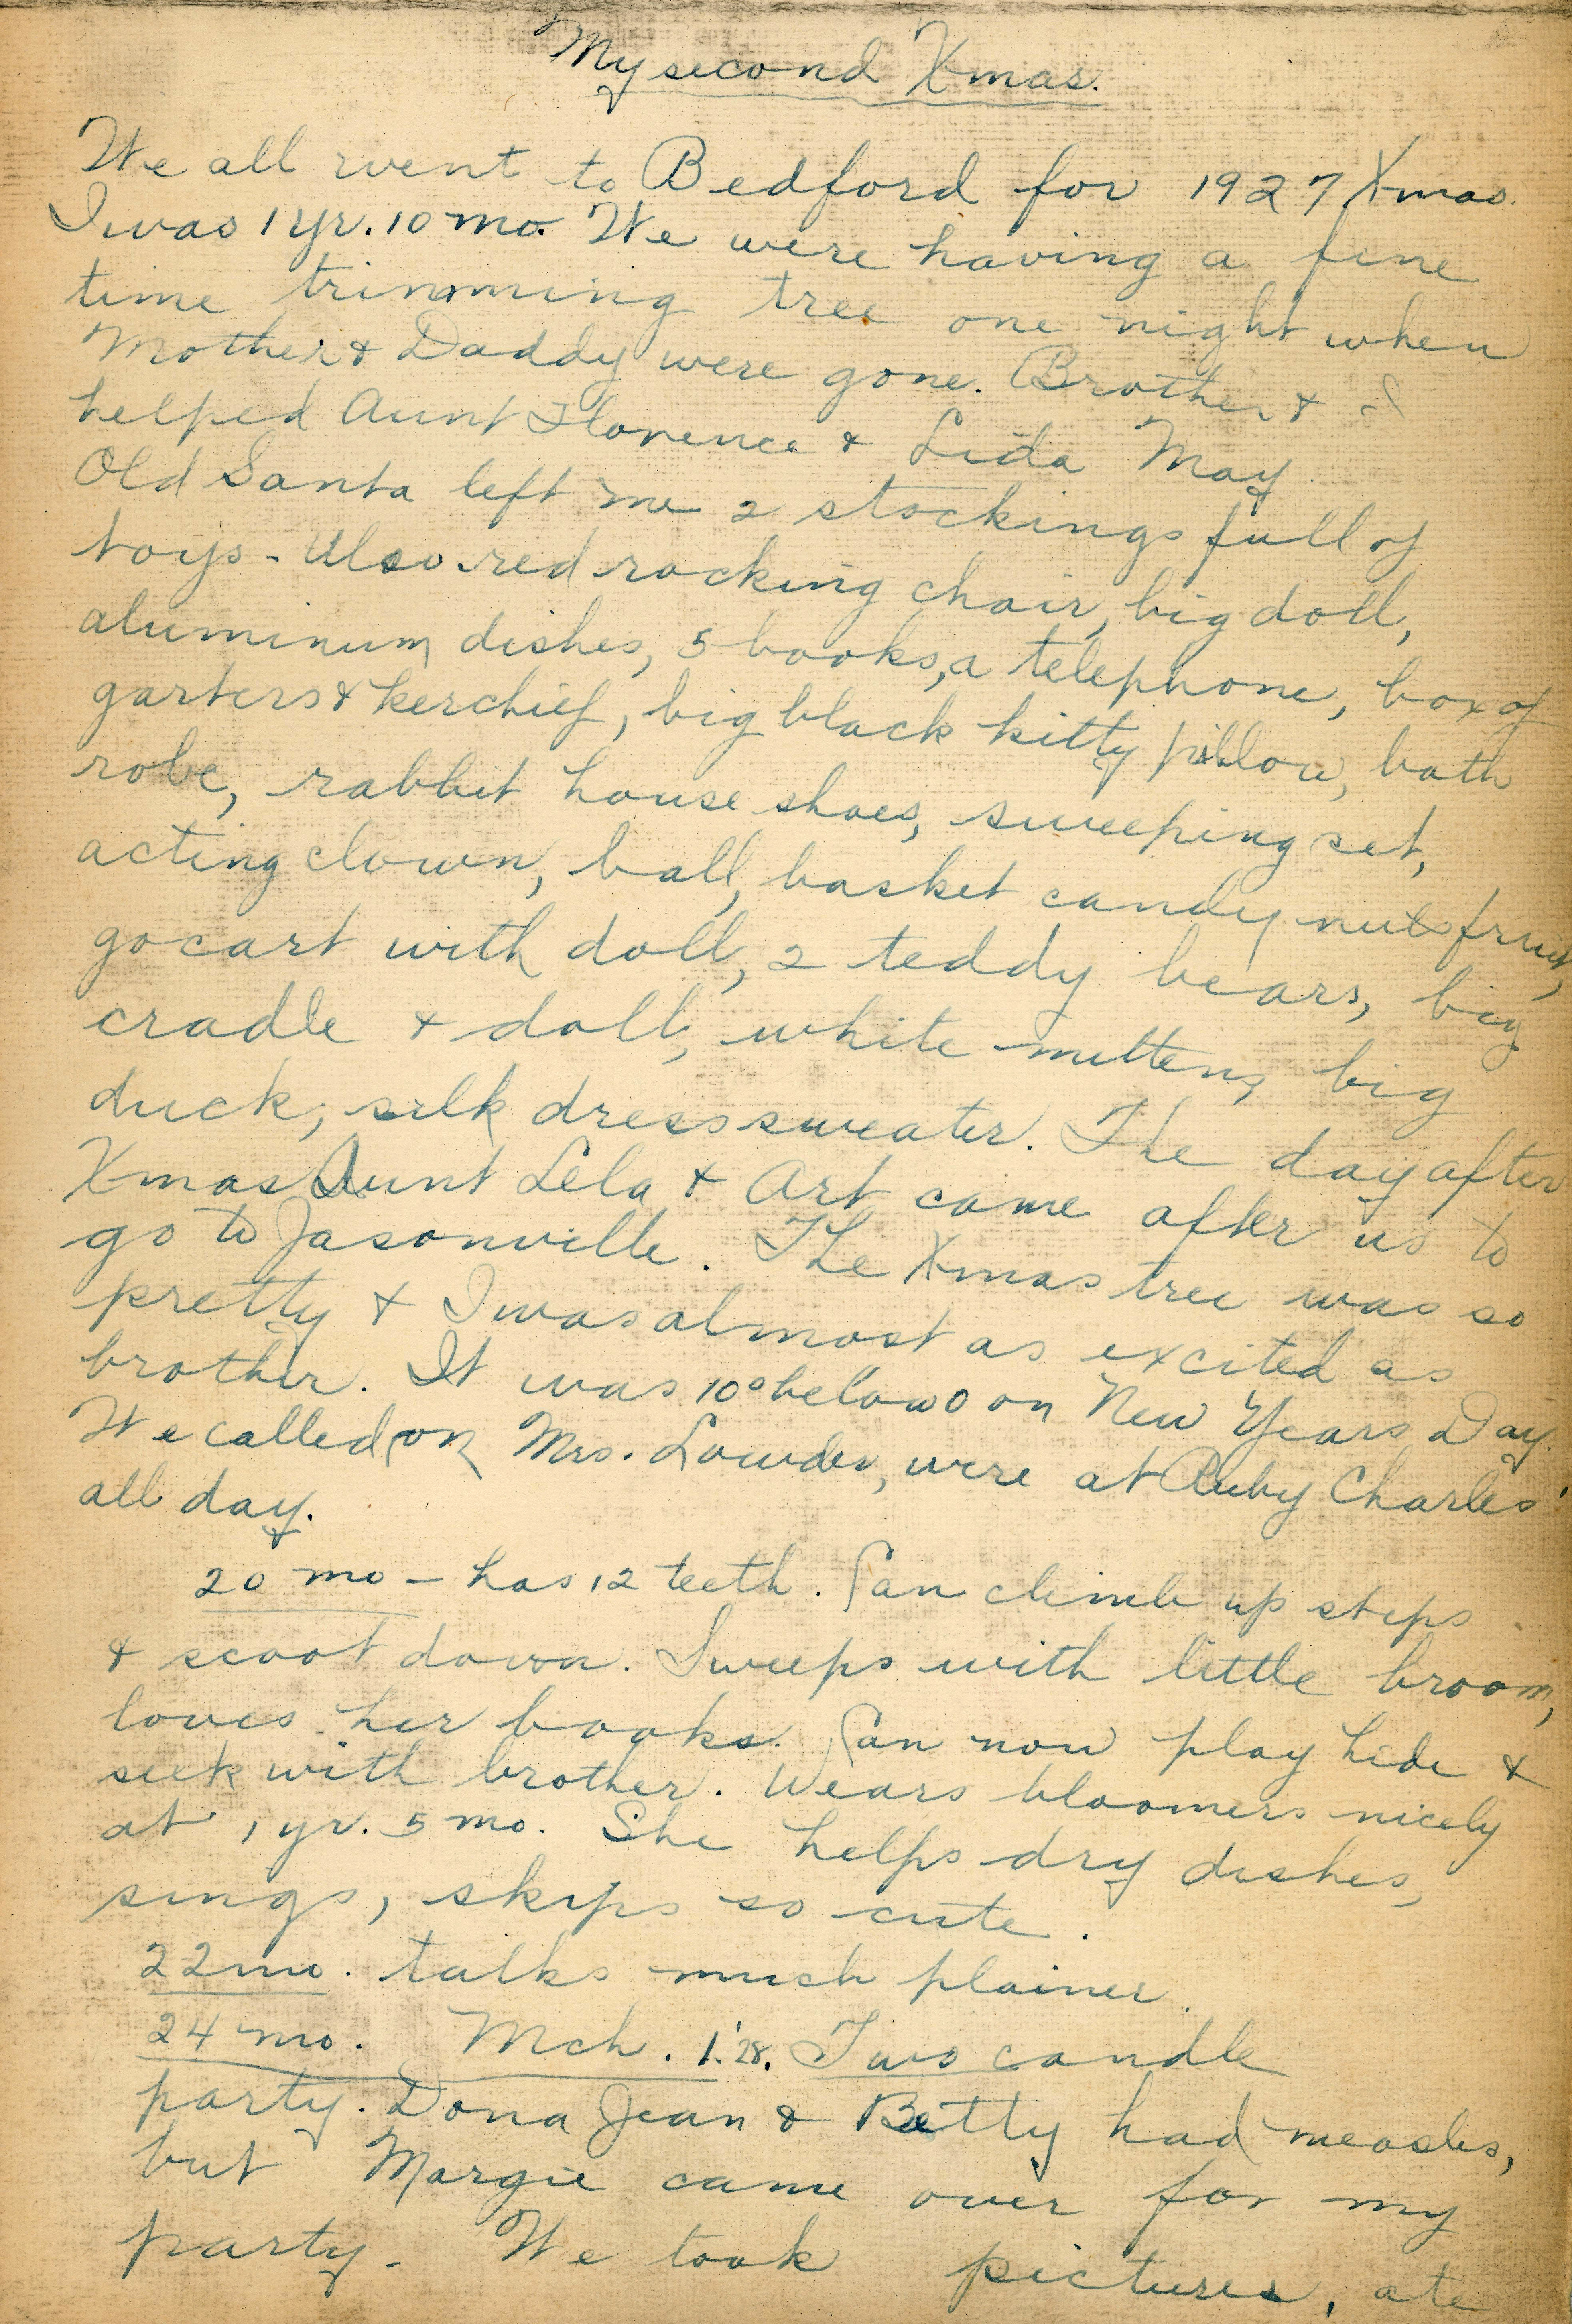 My second Xmas.
We all went to Bedford for 1927 Xmas.
I was 1 yr. 10 mo. We were having a fine
time trimming tree one night when
Mother & Daddy were gone. Brother & I
helped Aunt Florence & Lida May.
Old Santa left me 2 stockings full of
toys - Also red rocking chair, big doll,
aluminum dishes, 5 books, a telephone, box of
garters & kerchief, big black kitty pillow, bath
robe, rabbit house shoes, sweeping set,
acting clown, ball, basket candy nuts fruit,
gocart with doll, 2 teddy bears, big
cradle & doll, white mittens, big
duck, silk dress sweater. The day after
Xmas Aunt Lela & Art came after us to
go to Jasonville. The Xmas tree was so
pretty & I was almost as excited as
brother. It was 10° below 0 on New Years Day.
We called on Mrs. Lowder, were at Ruby Charles'
all day.
20 mo - has 12 teeth. Can climb up steps
& scoot down. Sweeps with little broom,
loves her books. Can now play hide &
seek with brother. Wears bloomers nicely
at 1 yr. 5 mo. She helps dry dishes,
sings, skips so cute.
22 mo. talks much plainer.
24 mo. Mch. 1. '28. Two candle
party. Dona Jean & Betty had measles,
but Margie came over for my
party. We took pictures, ate